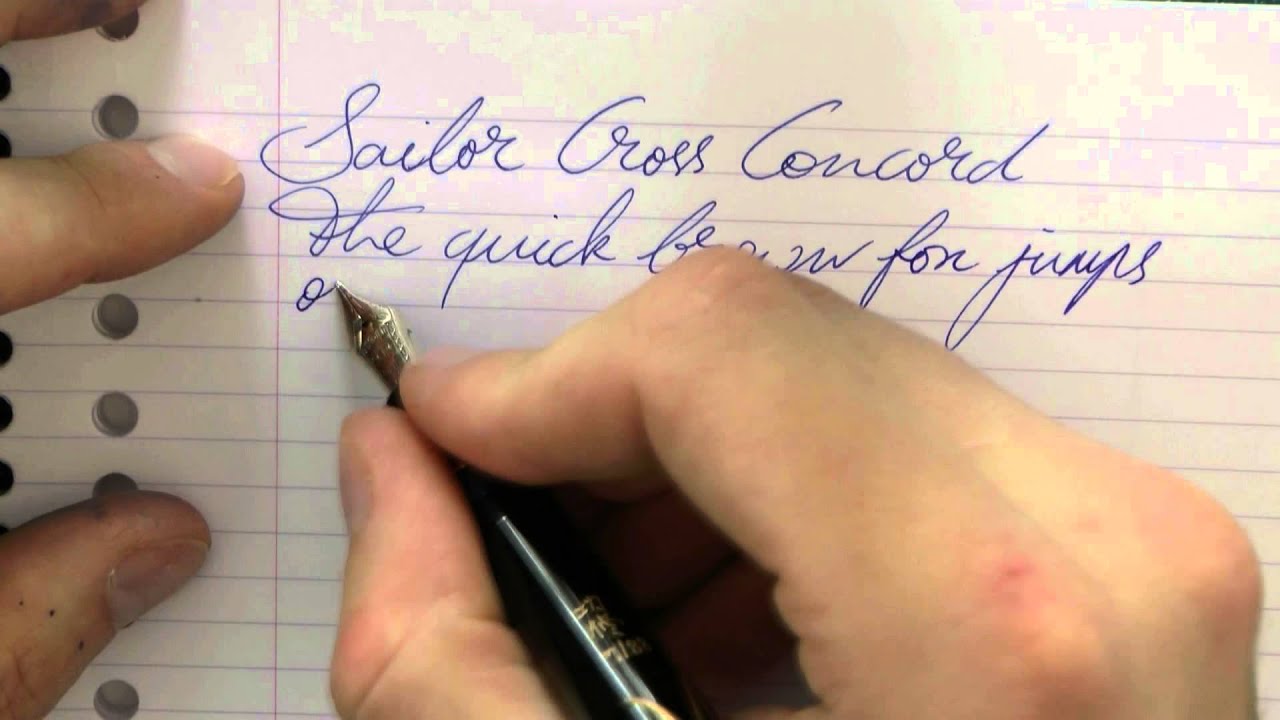 Sailor Cross Concord
The quick brown fox jumps
o